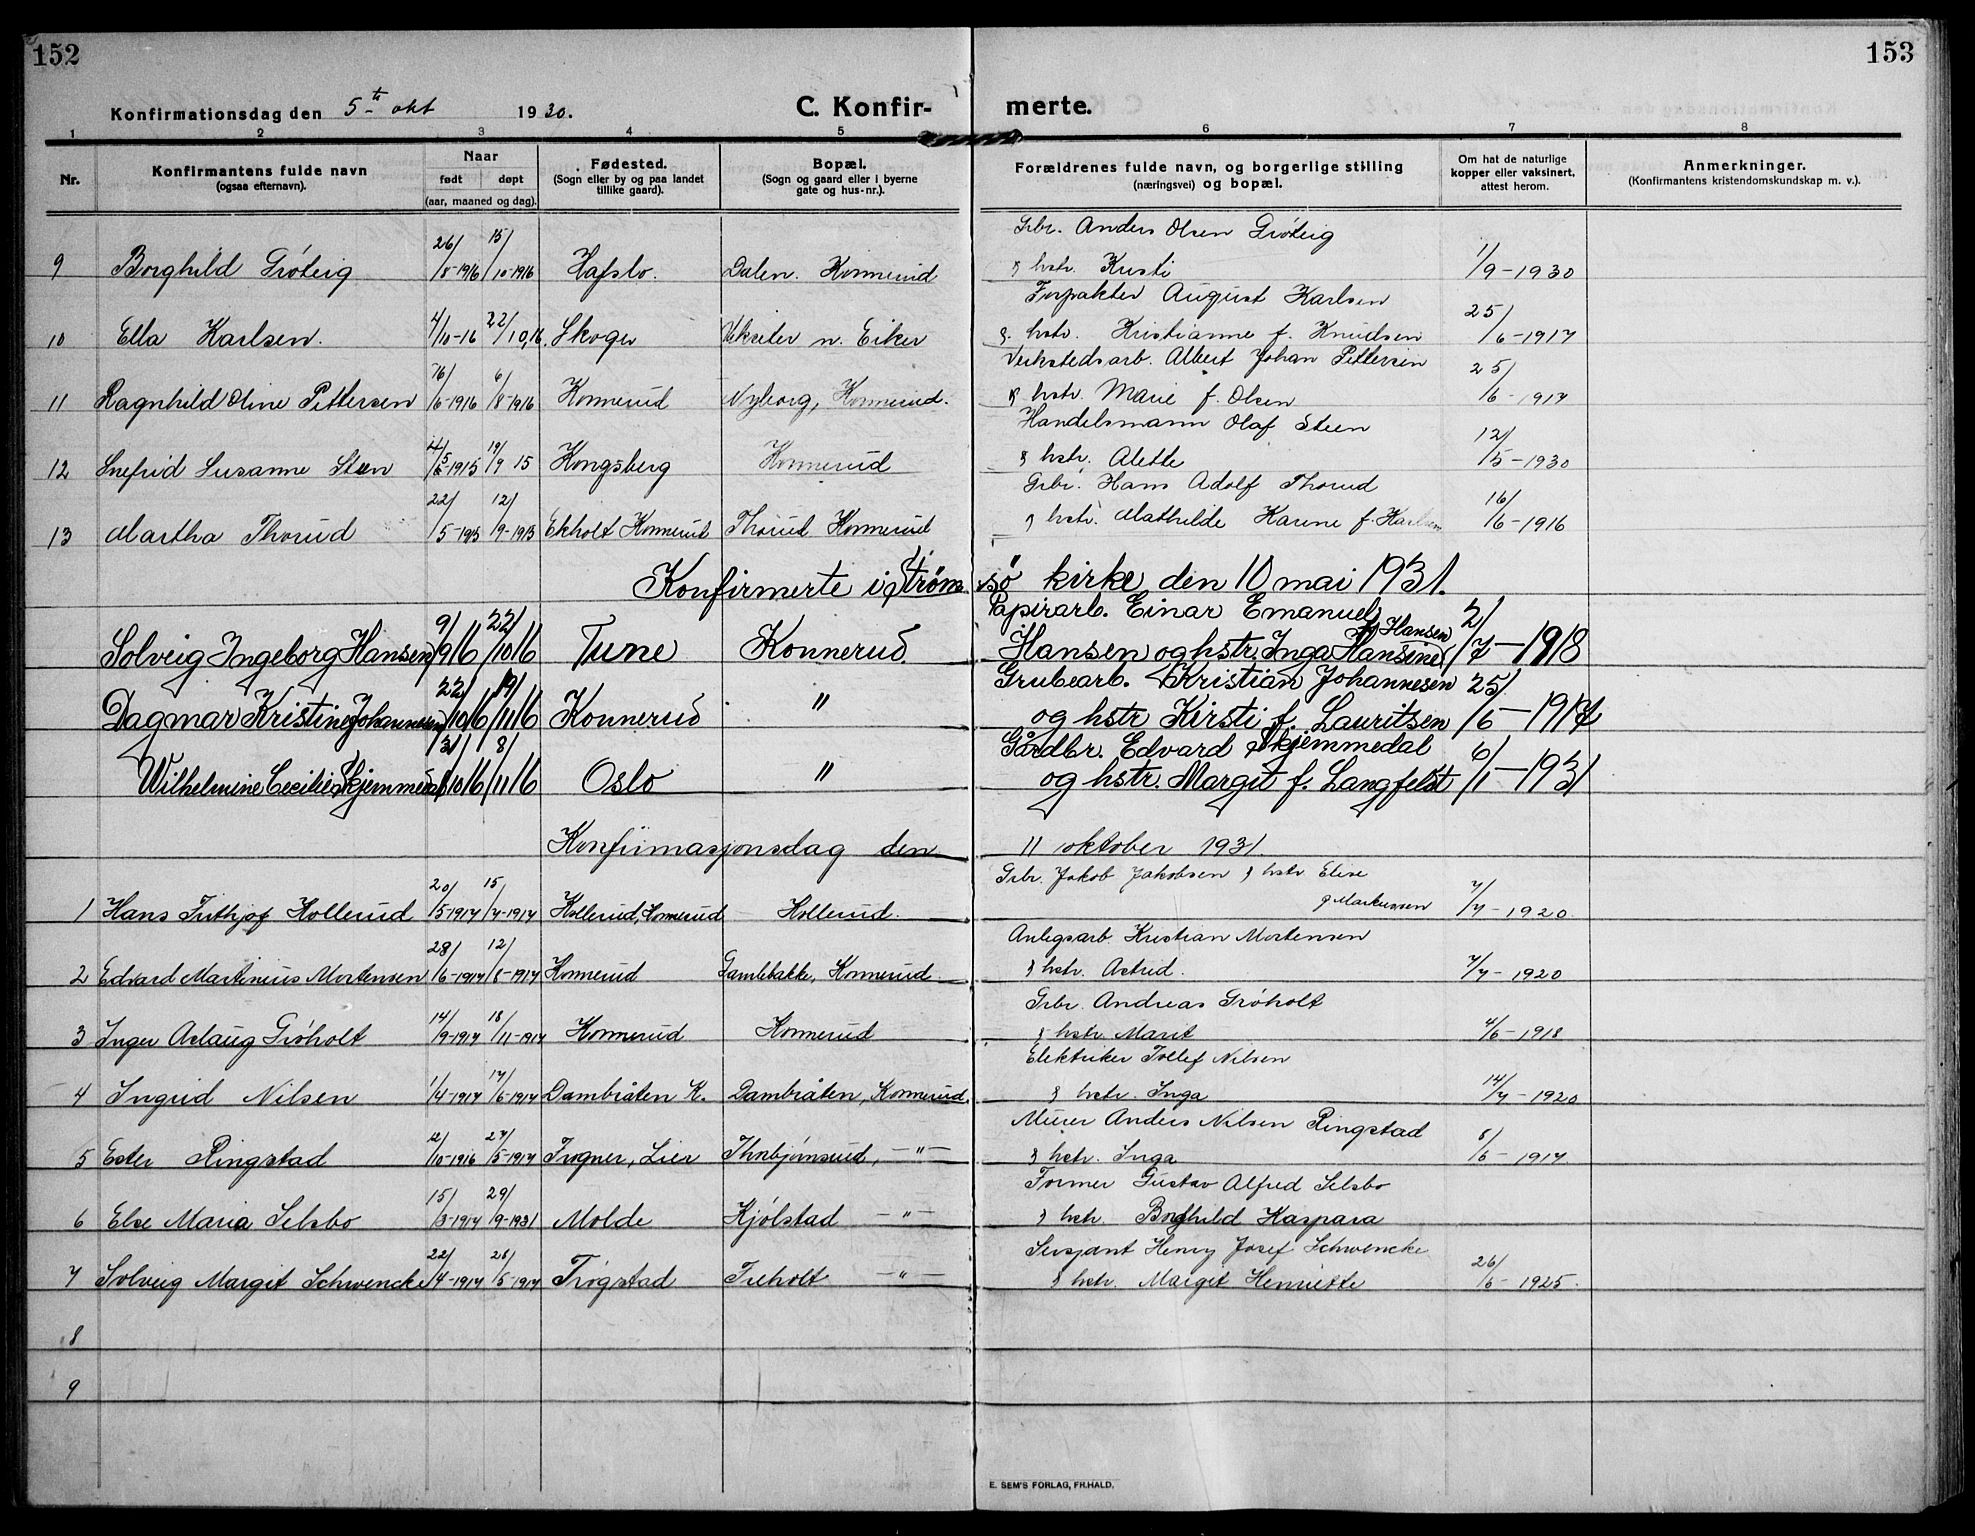 152
153
Konfirmationsdag den 5-te okt 1930.
C. Konfir- merte.
1 2 3 4 5 6 7 8
Nr. Konfirmantens fulde navn (ogsaa efternavn). Naar født døpt (aar, maaned og dag). Fødested. (Sogn eller by og paa landet tillike gaard). Bopæl. (Sogn og gaard eller i byerne gate og hus-nr.). Forældrenes fulde navn, og borgerlige stilling (næringsvei) og bopæl. Om hat de naturlige kopper eller vaksinert, attest herom. Anmerkninger. (Konfirmantens kristendomskundskap m. v.).
Grbr. Anders Olsen Grøteig
9 Borghild Grøteig 26/8-1916 15/10-1916 Hafslo. Dalen. Konnerud & hstr. Kristi 1/9-1930
Forpakter August Karlsen
10 Ella Karlsen. 4/10-16 22/10,16. Skoger Vekseter n. Eiker &. hstr. Kristianne f. Knudsen 25/6-1917
Verkstedsarb. Albert Johan Pettersen
11 Ragnhild Oline Pettersen 16/6-1916 6/8-1916 Konnerud Nyborg, Konnerud. & hstr. Marie f. Olsen 25/6-1917
Handelsmann Olaf Steen
12 Snefrid Susanne Steen 4/5-1915 19/9 15 Kongsberg Konnerud & hstr. Alette 12/5-1930
Grbr. Hans Adolf Thorud
13 Martha Thorud 22/5-1915 12/9-1915 Ekholt Konnerud Thorud Konnerud & hstr. Mathilde Karine f. Karlsen 16/6-1916
Konfirmerte i Strømsø kirke den 10 mai 1931.
Papirarb. Einar Emanuel
Solveig Ingeborg Hansen 9/9 16 22/10 16 Tune Konnerud Hansen og hstr. Inga Hansine f. Hansen 2/7-1918
Grubearb. Kristian Johannesen
Dagmar Kristine Johannesen 22/10 16 19/11 16 Konnerud " og hstr Kirsti f. Lauritsen 25/6-1917
Gårdbr. Edvard Skjemmedal
Wilhelmine Cecilie Skjemmedal 31/10 16 8/11 16 Oslo " og hstr. Margit f. Langfeldt 6/1-1931
Konfirmasjonsdag den 11 oktober 1931
Grbr. Jakob Jakobsen & hstr Elise
1 Hans Frithjof Kollerud 20/5-1917 15/7-1917 Kollerud, Konnerud Kollerud. f Markussen 7/7-1920
Anlegsarb. Kristian Mortensen
2 Edvard Martinius Mortensen 28/6-1917 12/8-1917 Konnerud Gamlebakke, Konnerud & hstr. Astrid. 7/7-1920
Grbr. Andreas Grøholt
3 Inger Aslaug Grøholt 14/9-1917 18/11-1917 Konnerud Konnerud & hstr. Marit 4/6-1918
Elektriker Tollef Nilsen
4 Ingrid Nilsen 1/4-1917 17/6-1917 Dambråten K. Dambråten, Konnerud. & hstr. Inga 14/7-1920
Murer Anders Nilsen Ringstad
5 Ester Ringstad 12/10-1916 27/5-1917 Frogner, Lier Thorbjørnsrud, -"- & hstr. Inga 8/6-1917
Former Gustav Alfred Selsbo
6 Else Maria Selsbo 15/3-1917 29/9-1931 Molde Kjølstad -"- & hstr. Borghild Kaspara
Sersjant Henry Josef Schwencke
7 Solveig Margit Schwencke 22/4-1917 28/5-1917 Trøgstad Treholt -"- & hstr. Margit Henriette 26/6-1925.
8
9
E. SEM'S FORLAG, FR.HALD.